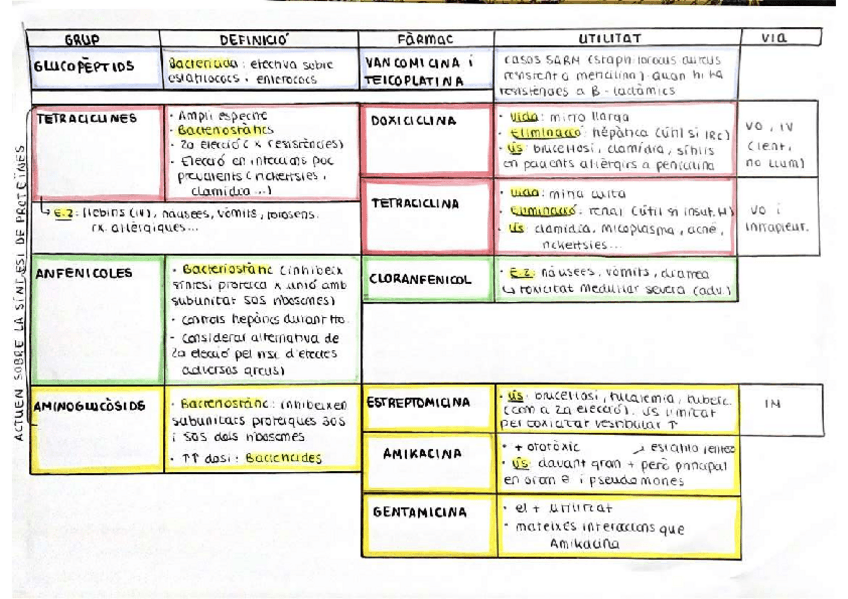 GRUP DEFINICIÓ FÀRMAC UTILITAT VIA
GLUCOPÈPTIDS
Bactericida: efectiva sobre
estafilococs i enterococs
VANCOMICINA i
TEICOPLATINA
casos SARM (Staphilococus aureus
resistent a meticilina) quan hi ha
resistències a B-lactàmics
ACTUEN SOBRE LA SÍNTESI DE PROTEÏNES
TETRACICLINES
· Ampli espectre
· Bacteriostàtics
· 2a elecció (x resistències)
· Elecció en infeccions poc
prevalents (rickettsies,
clamídia...)
E.2: flebitis (IV), nàusees, vòmits, fotosens.
rx. al·lèrgiques...
DOXICICLINA
· Vida: mitja llarga
· Eliminació: hepàtica (útil si IRC)
· Ús: brucel·losi, clamídia, sífilis
en pacients al·lèrgics a penicilina
VO, IV
(lent,
no llum)
TETRACICLINA
· Vida: mitja curta
· Eliminació: renal (útil si insuf. H)
· Ús: clamídia, micoplasma, acné,
rickettsies...
VO i
intrapleur.
ANFENICOLES
· Bacteriostàtic (inhibeix
síntesi proteica x unió amb
subunitat 50S ribosomes)
· controls hepàtics durant tto.
· Considerar alternativa de
2a elecció pel risc d'efectes
adversos greus)
CLORANFENICOL
· E.2: nàusees, vòmits, diarrea
↳ toxicitat medul·lar severa (adv.)
AMINOGLUCÒSIDS
· Bacteriostàtic: inhibeixen
subunitats proteiques 30S
i 50S dels ribosomes
· ↑↑ dosi: Bactericides
ESTREPTOMICINA
· Ús: brucel·losi, tularemia, tuberc.
(com a 2a elecció). Ús limitat
per toxicitat vestibular ↑
IM
AMIKACINA
· + ototòxic
· Ús: davant gram + però principal
en gram ⊖ i pseudomones
GENTAMICINA
· el + utilitzat
· mateixes interaccions que
Amikacina